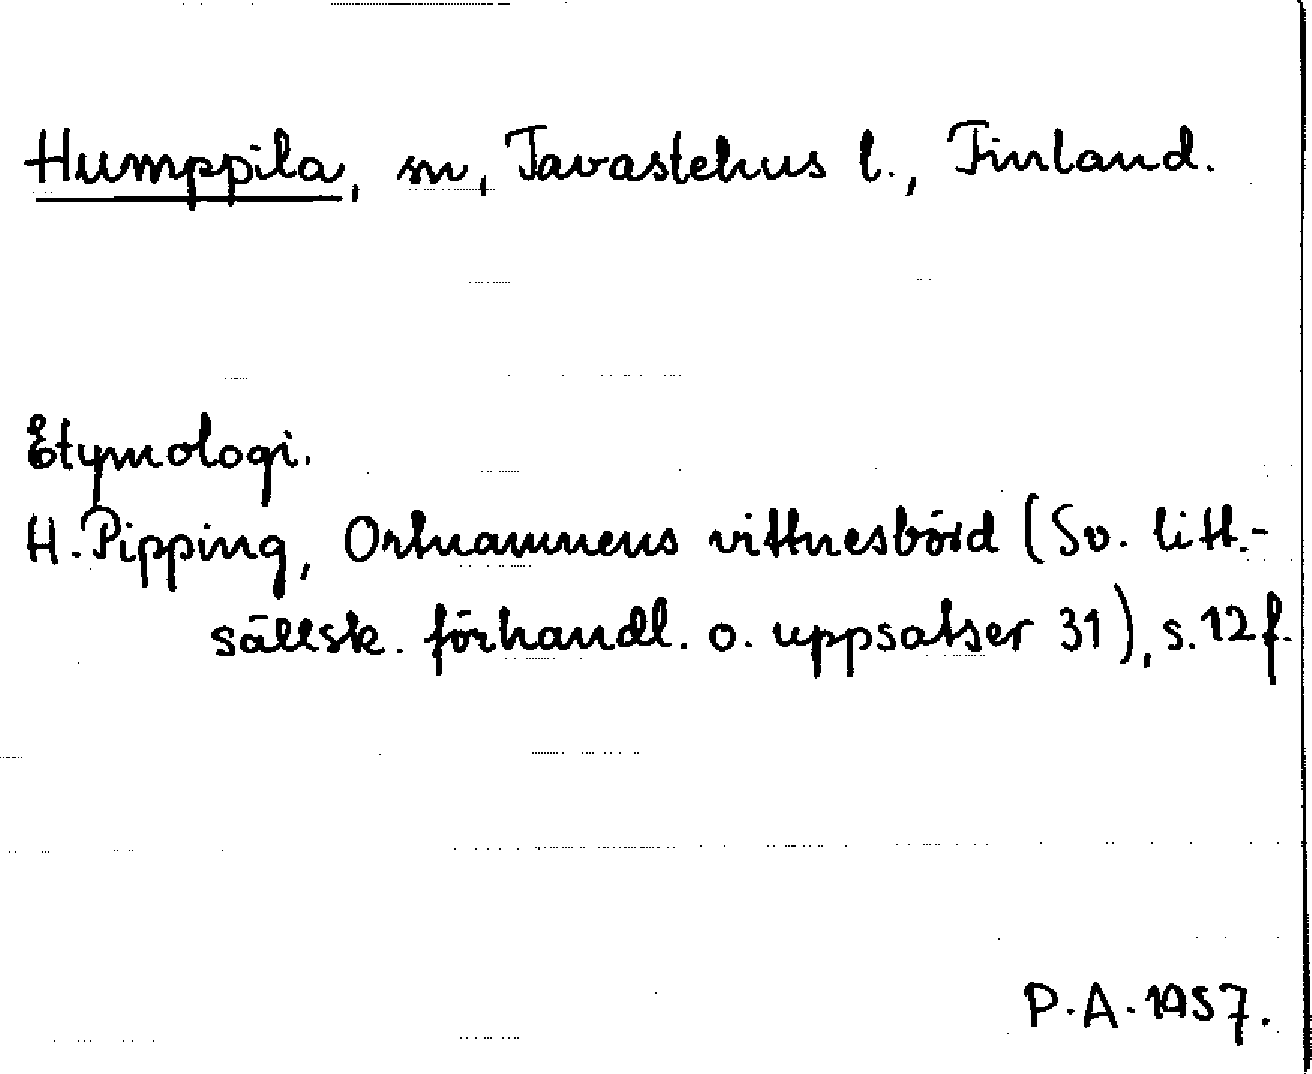 Humppila, sn, Tavastehus l., Finland.
Etymologi.
H. Pipping, Ortnamnens vittnesbörd (Sv. litt.-
sällsk. förhandl. o. uppsatser 31), s. 12 f.
P. A. 1957.